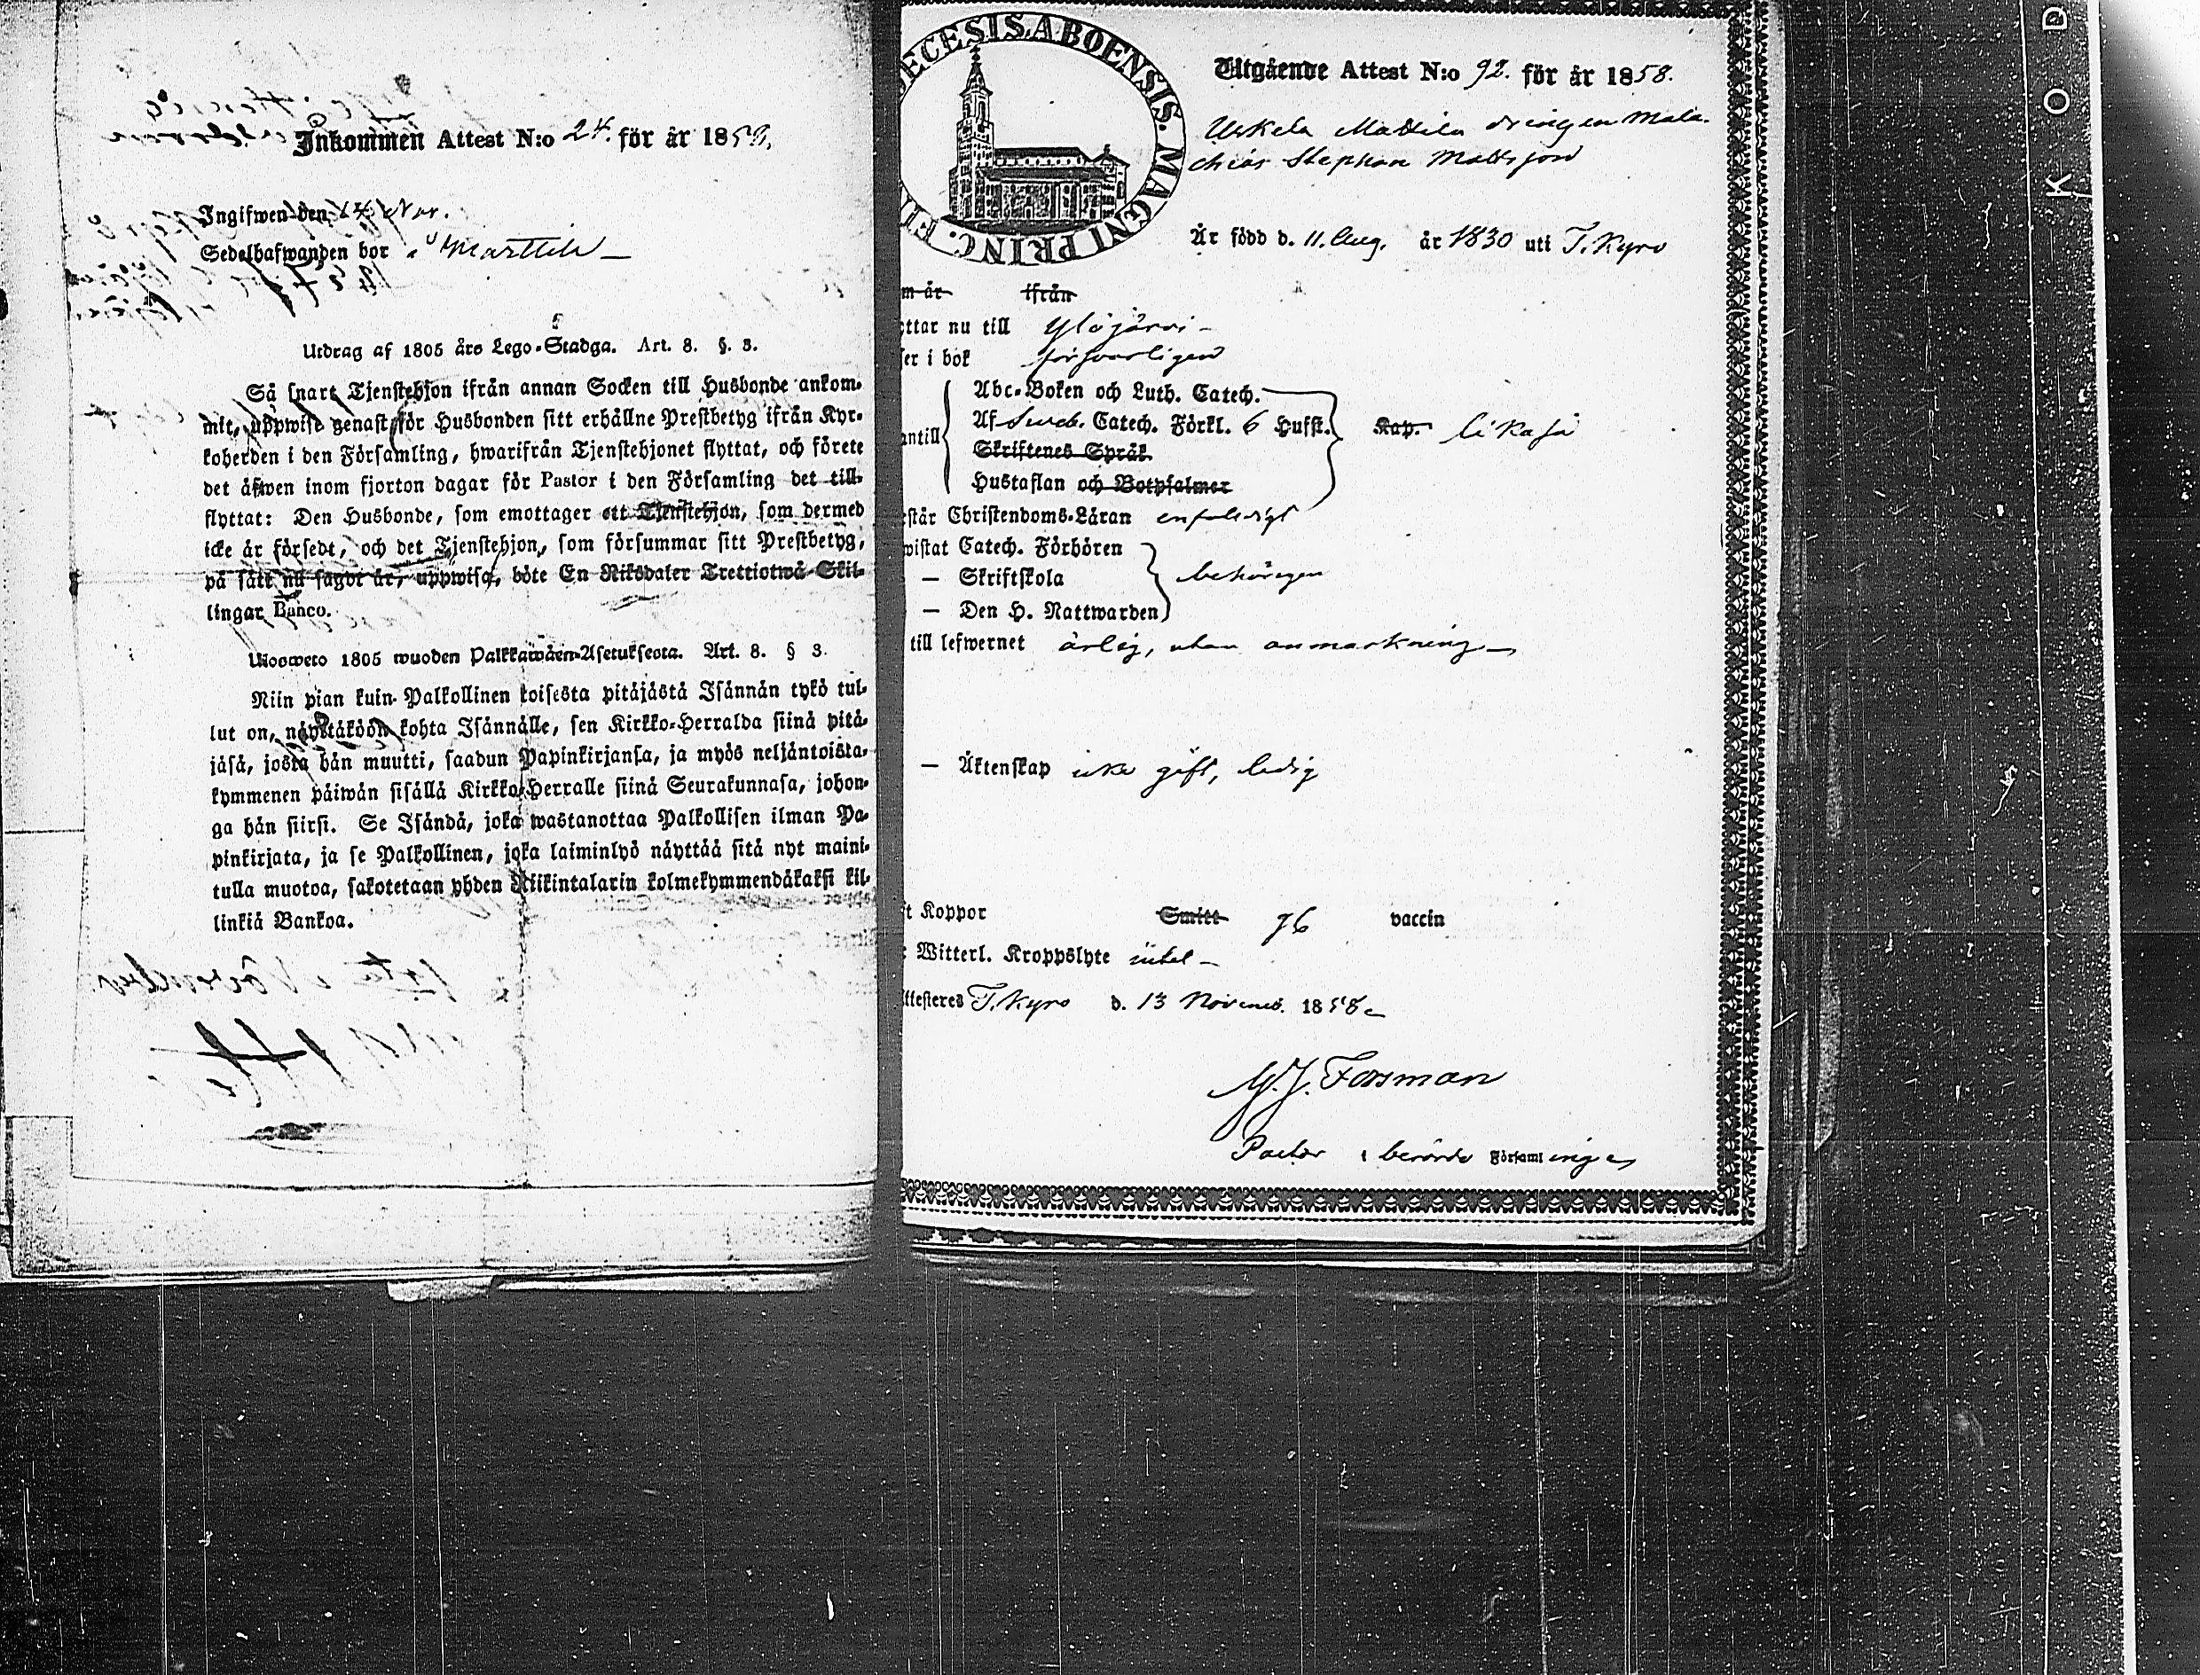 Inkommen Attest N:o 24. för år 1858.
Ingifwen den 14 Nov.
Sedelhafwanden bor i Marttila
Utdrag af 1805 års Lego-Stadga. Art. 8. §. 3.
Så snart Tjenstehjon ifrån annan Socken till Husbonde ankom-
mit, uppwise genast för Husbonden sitt erhållne Prestbetyg ifrån Kyr-
koherden i den Församling, hwarifrån Tjenstehjonet flyttat, och förete
det äfwen inom fjorton dagar för Pastor i den Församling det till-
flyttat: Den Husbonde, som emottager ett Tjenstehjon, som dermed
icke är försedt, och det Tjenstehjon, som försummar sitt Prestbetyg,
på sätt nu sagdt är, uppwisa, böte En Riksdaler Trettiotwå Skil-
lingar Banco.
Ulosweto 1805 wuoden Palkkawäen-Asetuksesta. Art. 8. § 3.
Niin pian kuin Palkollinen toisesta pitäjästä Isännän tykö tul-
lut on, näyttäköön kohta Isännälle, sen Kirkko-Herralda siinä pitä-
jäsä, josta hän muutti, saadun Papinkirjansa, ja myös neljäntoista-
kymmenen päiwän sisällä Kirkko-Herralle siinä Seurakunnasa, johon-
ga hän siirsi. Se Isändä, joka wastanottaa Palkollisen ilman Pa-
pinkirjata, ja se Palkollinen, joka laiminlyö näyttää sitä nyt maini-
tulla muotoa, sakotetaan yhden Riikintalarin kolmekymmendäkaksi kil-
linkiä Bankoa.
DECESIS ABOENSIS. MAGNI PRINC. FI
Utgående Attest N:o 92. för år 1858.
Uskela Mattila drängen Mala-
chias Stephan Mattsson
Är född d. 11. Aug. år 1830 uti T. Kyro
m år ifrån
yttar nu till Ylöjärvi -
ser i bok försvarligen
Abc-Boken och Luth. Catech.
Af Sveb. Catech. Förkl. 6 Hufst. Kap. likaså
antill
Skriftenes Språk
Hustaflan och Botpsalmer
står Christendoms-Läran enfaldigt
wistat Catech. Förhören
— Skriftskola behörigen
— Den H. Nattwarden
till lefwernet ärlig, utan anmärkning -
— Äktenskap icke gift, ledig
t Koppor Smitt- genom vaccin
Witterl. Kroppslyte intet -
ttesteres T. Kyro d. 13 Novemb. 1858
M. J. Forsman
Pastor i berörde Församlingen
KOD